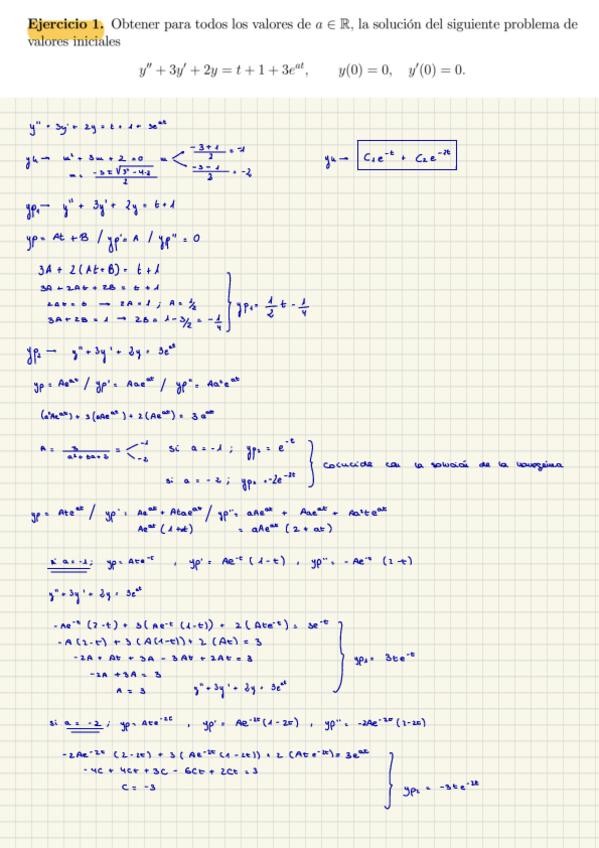 Ejercicio 1. Obtener para todos los valores de a ∈ ℝ, la solución del siguiente problema de
valores iniciales
y'' + 3y' + 2y = t + 1 + 3e^{at}, y(0) = 0, y'(0) = 0.
y'' + 3y' + 2y = t + 1 + 3e^{at}
yh → m² + 3m + 2 = 0 m < (-3+1)/2 = -1
yh → C₁e^{-t} + C₂e^{-2t}
m = (-3 ± √(3² - 4·2))/2 (-3-1)/2 = -2
yp₁ → y'' + 3y' + 2y = t + 1
yp = At + B / yp' = A / yp'' = 0
3A + 2(At+B) = t + 1
3A + 2At + 2B = t + 1
2At = t → 2A = 1 ; A = 1/2
yp₁ = 1/2 t - 1/4
3A + 2B = 1 → 2B = 1 - 3/2 = -1/4
yp₂ → y'' + 3y' + 2y = 3e^{at}
yp = Ae^{at} / yp' = Aae^{at} / yp'' = Aa²e^{at}
(a²Ae^{at}) + 3(aAe^{at}) + 2(Ae^{at}) = 3e^{at}
A = 3/(a²+3a+2) = < -1 -2 si a = -1 ; yp₂ = e^{-t}
coincide con la solución de la homogénea
si a = -2 ; yp₂ = -2e^{-2t}
yp = Ate^{at} / yp' = Ae^{at} + Atae^{at} / yp'' = aAe^{at} + Aae^{at} + Aa²te^{at}
Ae^{at}(1+at) = aAe^{at}(2+at)
si a = -1; yp = Ate^{-t} , yp' = Ae^{-t}(1-t) , yp'' = -Ae^{-t}(2-t)
y'' + 3y' + 2y = 3e^{at}
-Ae^{-t}(2-t) + 3(Ae^{-t}(1-t)) + 2(Ate^{-t}) = 3e^{-t}
-A(2-t) + 3(A(1-t)) + 2(At) = 3
-2A + At + 3A - 3At + 2At = 3
yp₂ = 3te^{-t}
-2A + 3A = 3
A = 3 y'' + 3y' + 2y = 3e^{at}
si a = -2; yp = Ate^{-2t} , yp' = Ae^{-2t}(1-2t) , yp'' = -2Ae^{-2t}(2-2t)
-2Ae^{-2t}(2-2t) + 3(Ae^{-2t}(1-2t)) + 2(Ate^{-2t}) = 3e^{at}
-4C + 4Ct + 3C - 6Ct + 2Ct = 3
C = -3
yp₂ = -3te^{-2t}